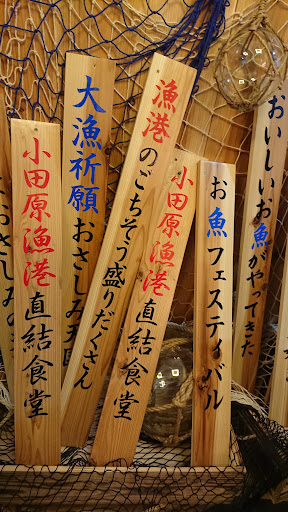 小田原漁港直結食堂
大漁祈願おさしみ天国
漁港のごちそう盛りだくさん
小田原漁港直結食堂
お魚フェスティバル
おいしいお魚がやってきた
おさしみ